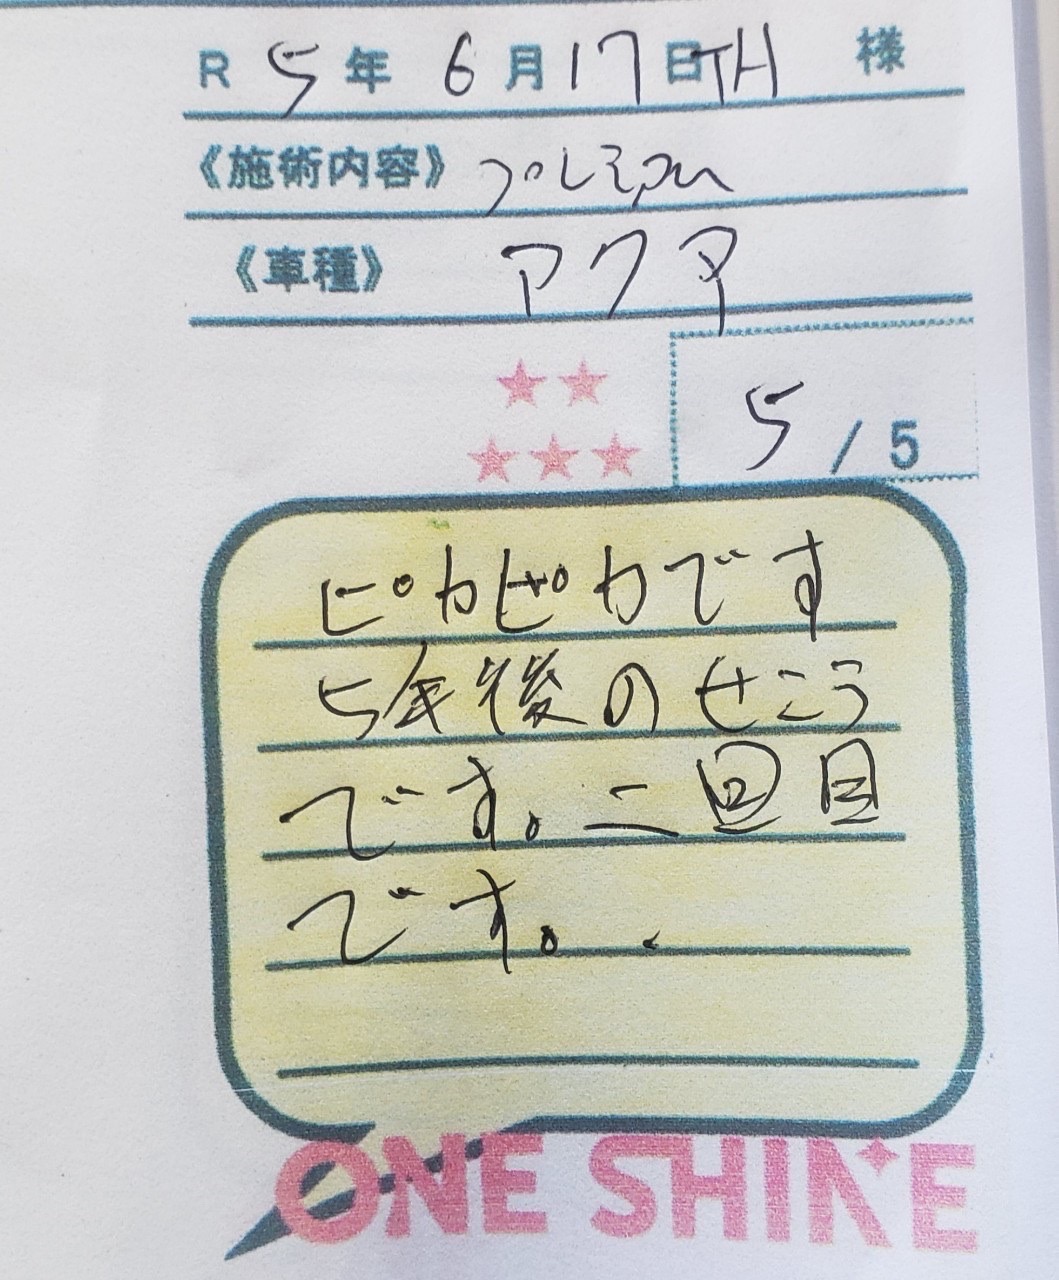 R 5年 6月17日TH 様
《施術内容》プレミアム
《車種》 アクア
5 / 5
ピカピカです
5年後のせこう
です。二回目
です。
ONE SHINE